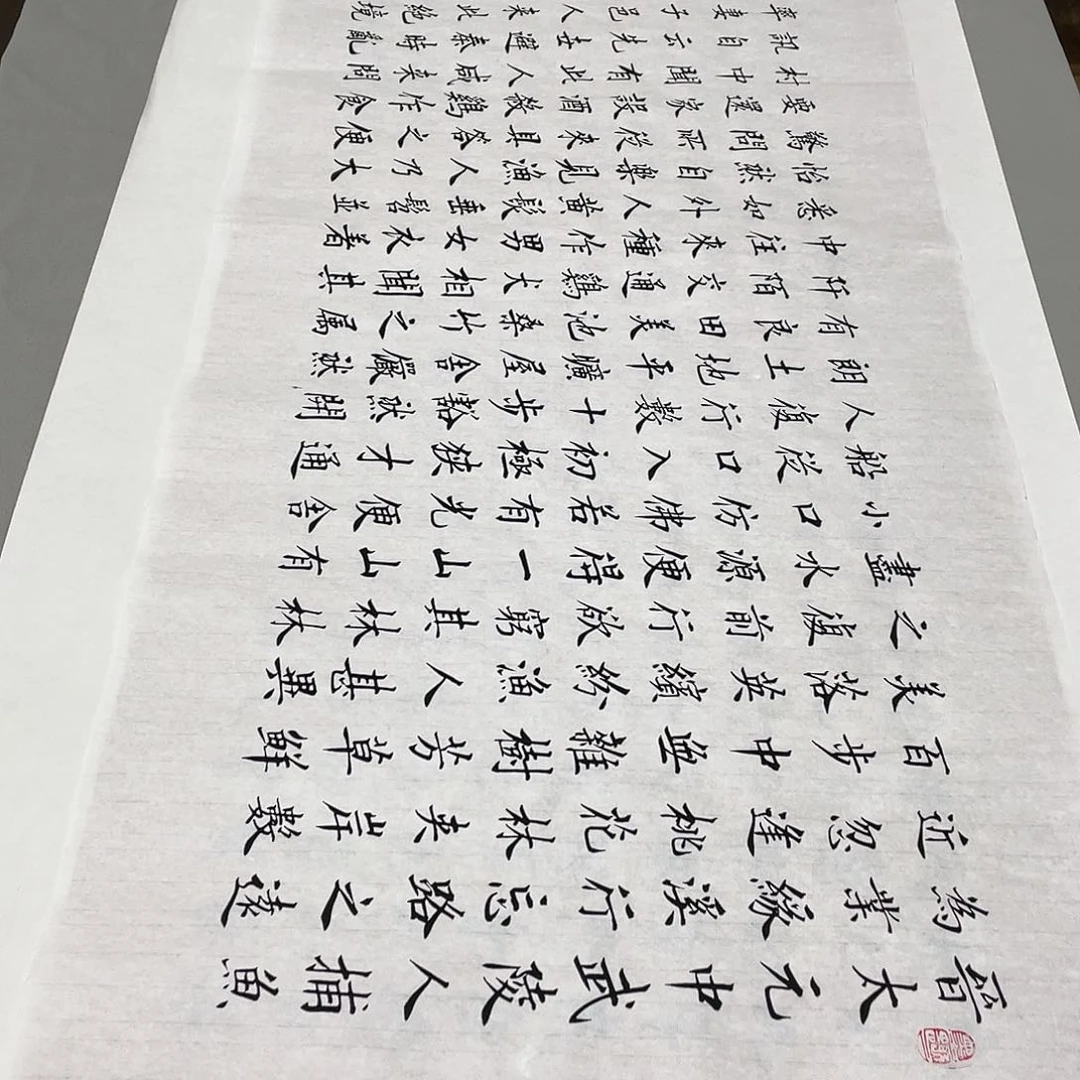 晉太元中武陵人捕魚
為業緣溪行忘路之遠
近忽逢桃花林夾岸數
百步中無雜樹芳草鮮
美落英繽紛漁人甚異
之復前行欲窮其林林
盡水源便得一山山有
小口仿佛若有光便舍
船從口入初極狹才通
人復行數十步豁然開
朗土地平曠屋舍儼然
有良田美池桑竹之属
阡陌交通鷄犬相聞其
中往來種作男女衣著
悉如外人黄髮垂髫並
怡然自樂見漁人乃大
驚問所從來具答之便
要還家設酒殺鷄作食
村中聞有此人咸来問
訊自云先世避秦時亂
率妻子邑人来此絕境